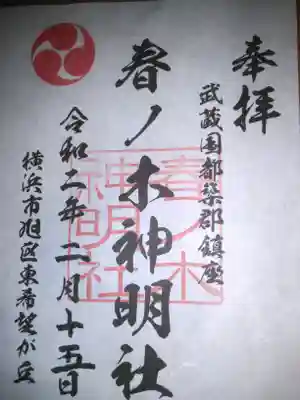 奉拝
武蔵国都築郡鎮座
春ノ木神明社
春ノ木
神明社
令和二年二月十五日
横浜市旭区東希望が丘